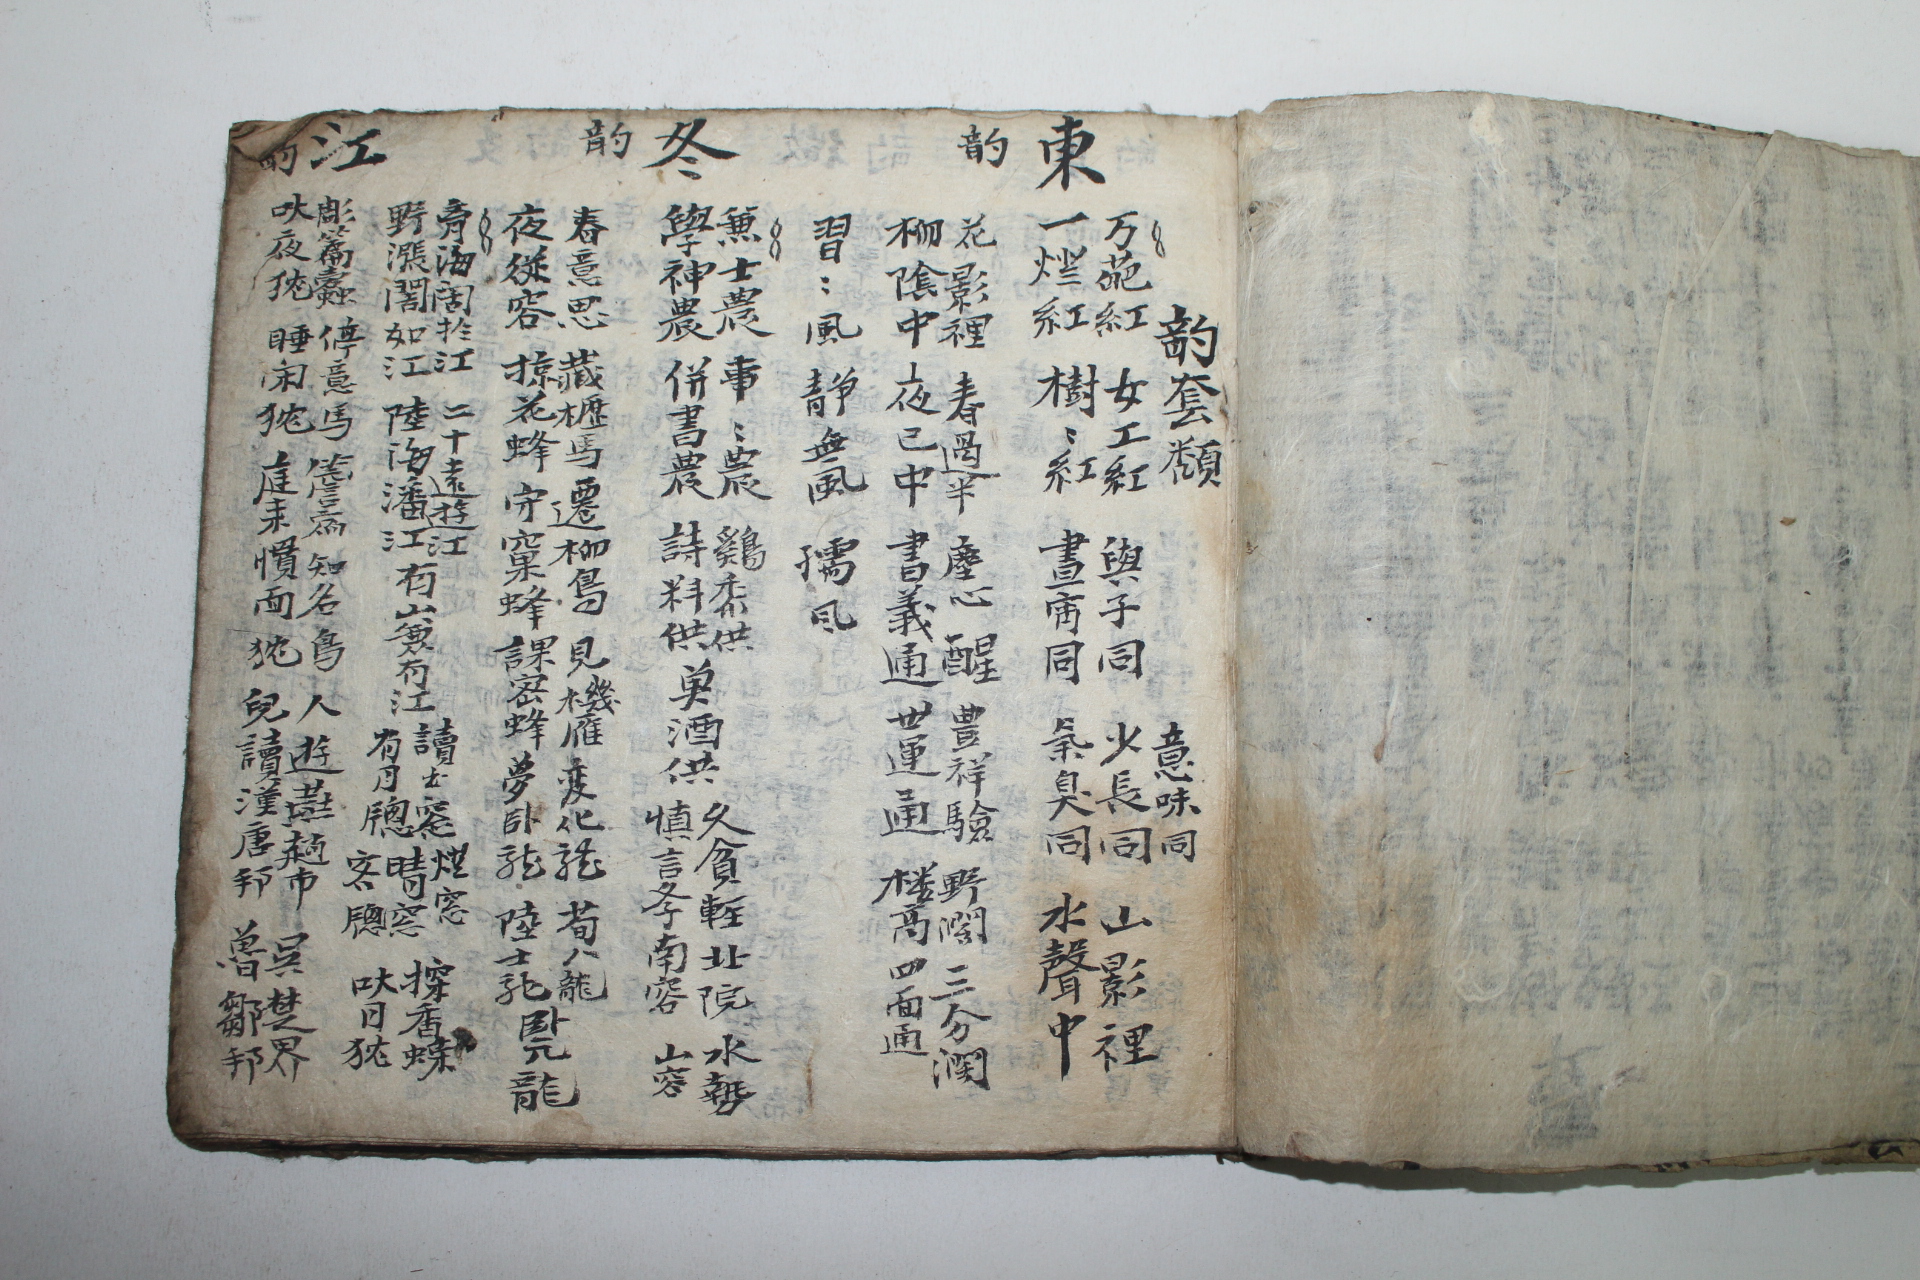 韵套類
意味同
東韵
万葩紅 女工紅 與子同 少長同 山影裡
一燈紅 樹〻紅 晝宵同 氣臭同 水聲中
花影裡 春過半 塵心醒 豊祥驗 野濶 三分濶
柳陰中 夜已中 書義通 世運通 楼高 四面通
習〻風 靜無風 孺風
冬韵
兼士農 事〻農 鷄黍供 久貧輕 北院 水勢
學神農 併書農 詩料供 奠酒供 慎言冬 南容 山容
春意思 藏櫪馬 遷柳鳥 見機雁 変化龍 荀八龍
夜從容 掠花蜂 守窠蜂 課密蜂 夢卧龍 陸士龍 卧元龍
江韵
海濶於江 二十遠遊江 讀書窓 燈窓 探香蝶
野漲濶如江 陸海潘江 有山兼有江 有月牕 晴窓 客牕 吠月狵
彫篆蟲 停意馬 知名鳥 人遊燕趙市 吳楚界
吠夜狵 睡閑狵 庭来慣面狵 兒讀漢唐邦 魯鄒邦